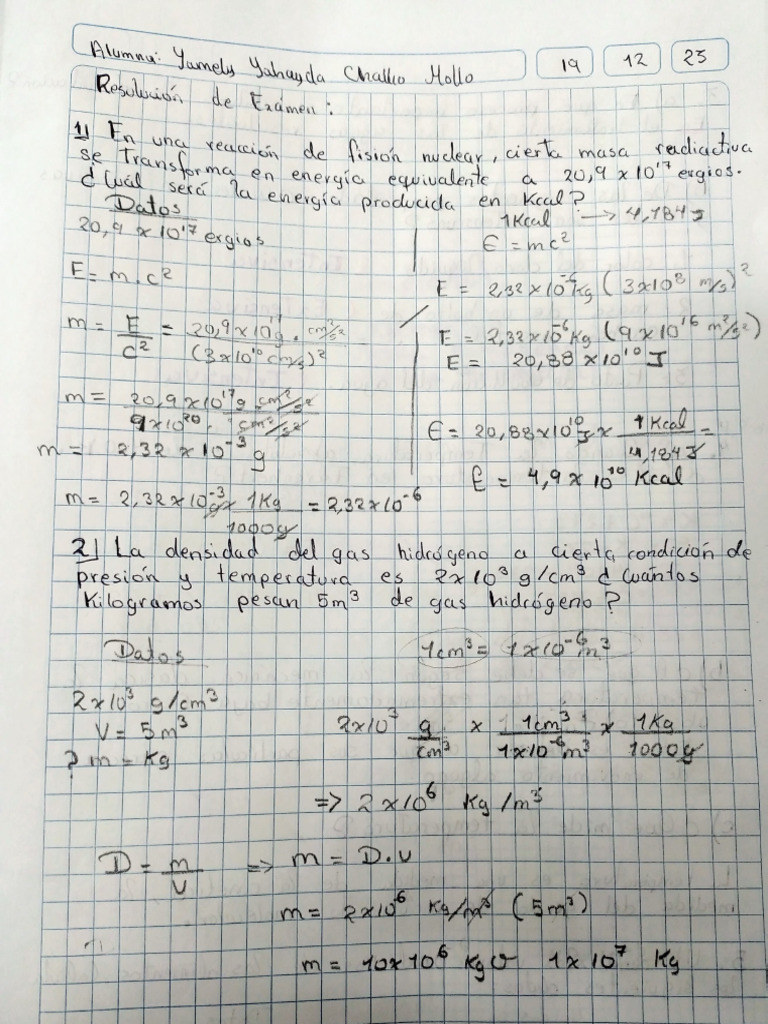 Alumna: Yamely Yahayda Challco Mollo 19 12 23
Resolución de Exámen:
1) En una reacción de fisión nuclear, cierta masa radiactiva
se transforma en energía equivalente a 20,9 x 10¹⁷ ergios.
¿Cuál será la energía producida en Kcal?
Datos
20,9 x 10¹⁷ ergios
E = m.c²
m = E/c² = 20,9 x 10¹⁷ g . cm²/s² / (3x10¹⁰ cm/s)²
m = 20,9 x 10¹⁷ g cm²/s² / 9x10²⁰ . cm²/s²
m = 2,32 x 10⁻³ g
m = 2,32 x 10⁻³ g x 1Kg/1000g = 2,32x10⁻⁶
1Kcal → 4,184J
E = mc²
E = 2,32x10⁻⁶ Kg (3x10⁸ m/s)²
E = 2,32x10⁻⁶ Kg (9x10¹⁶ m²/s²)
E = 20,88 x10¹⁰ J
E = 20,88x10¹⁰ J x 1Kcal/4,184J =
E = 4,9 x 10¹⁰ Kcal
2) La densidad del gas hidrógeno a cierta condición de
presión y temperatura es 2x10³ g/cm³ ¿Cuántos
Kilogramos pesan 5m³ de gas hidrógeno?
Datos
1cm³ = 1x10⁻⁶ m³
2x10³ g/cm³
V = 5m³
? m = Kg
2x10³ g/cm³ x 1cm³/1x10⁻⁶m³ x 1Kg/1000g
=> 2x10⁶ Kg/m³
D = m/V => m = D.v
m = 2x10⁶ Kg/m³ (5m³)
m = 10x10⁶ Kg o 1x10⁷ Kg